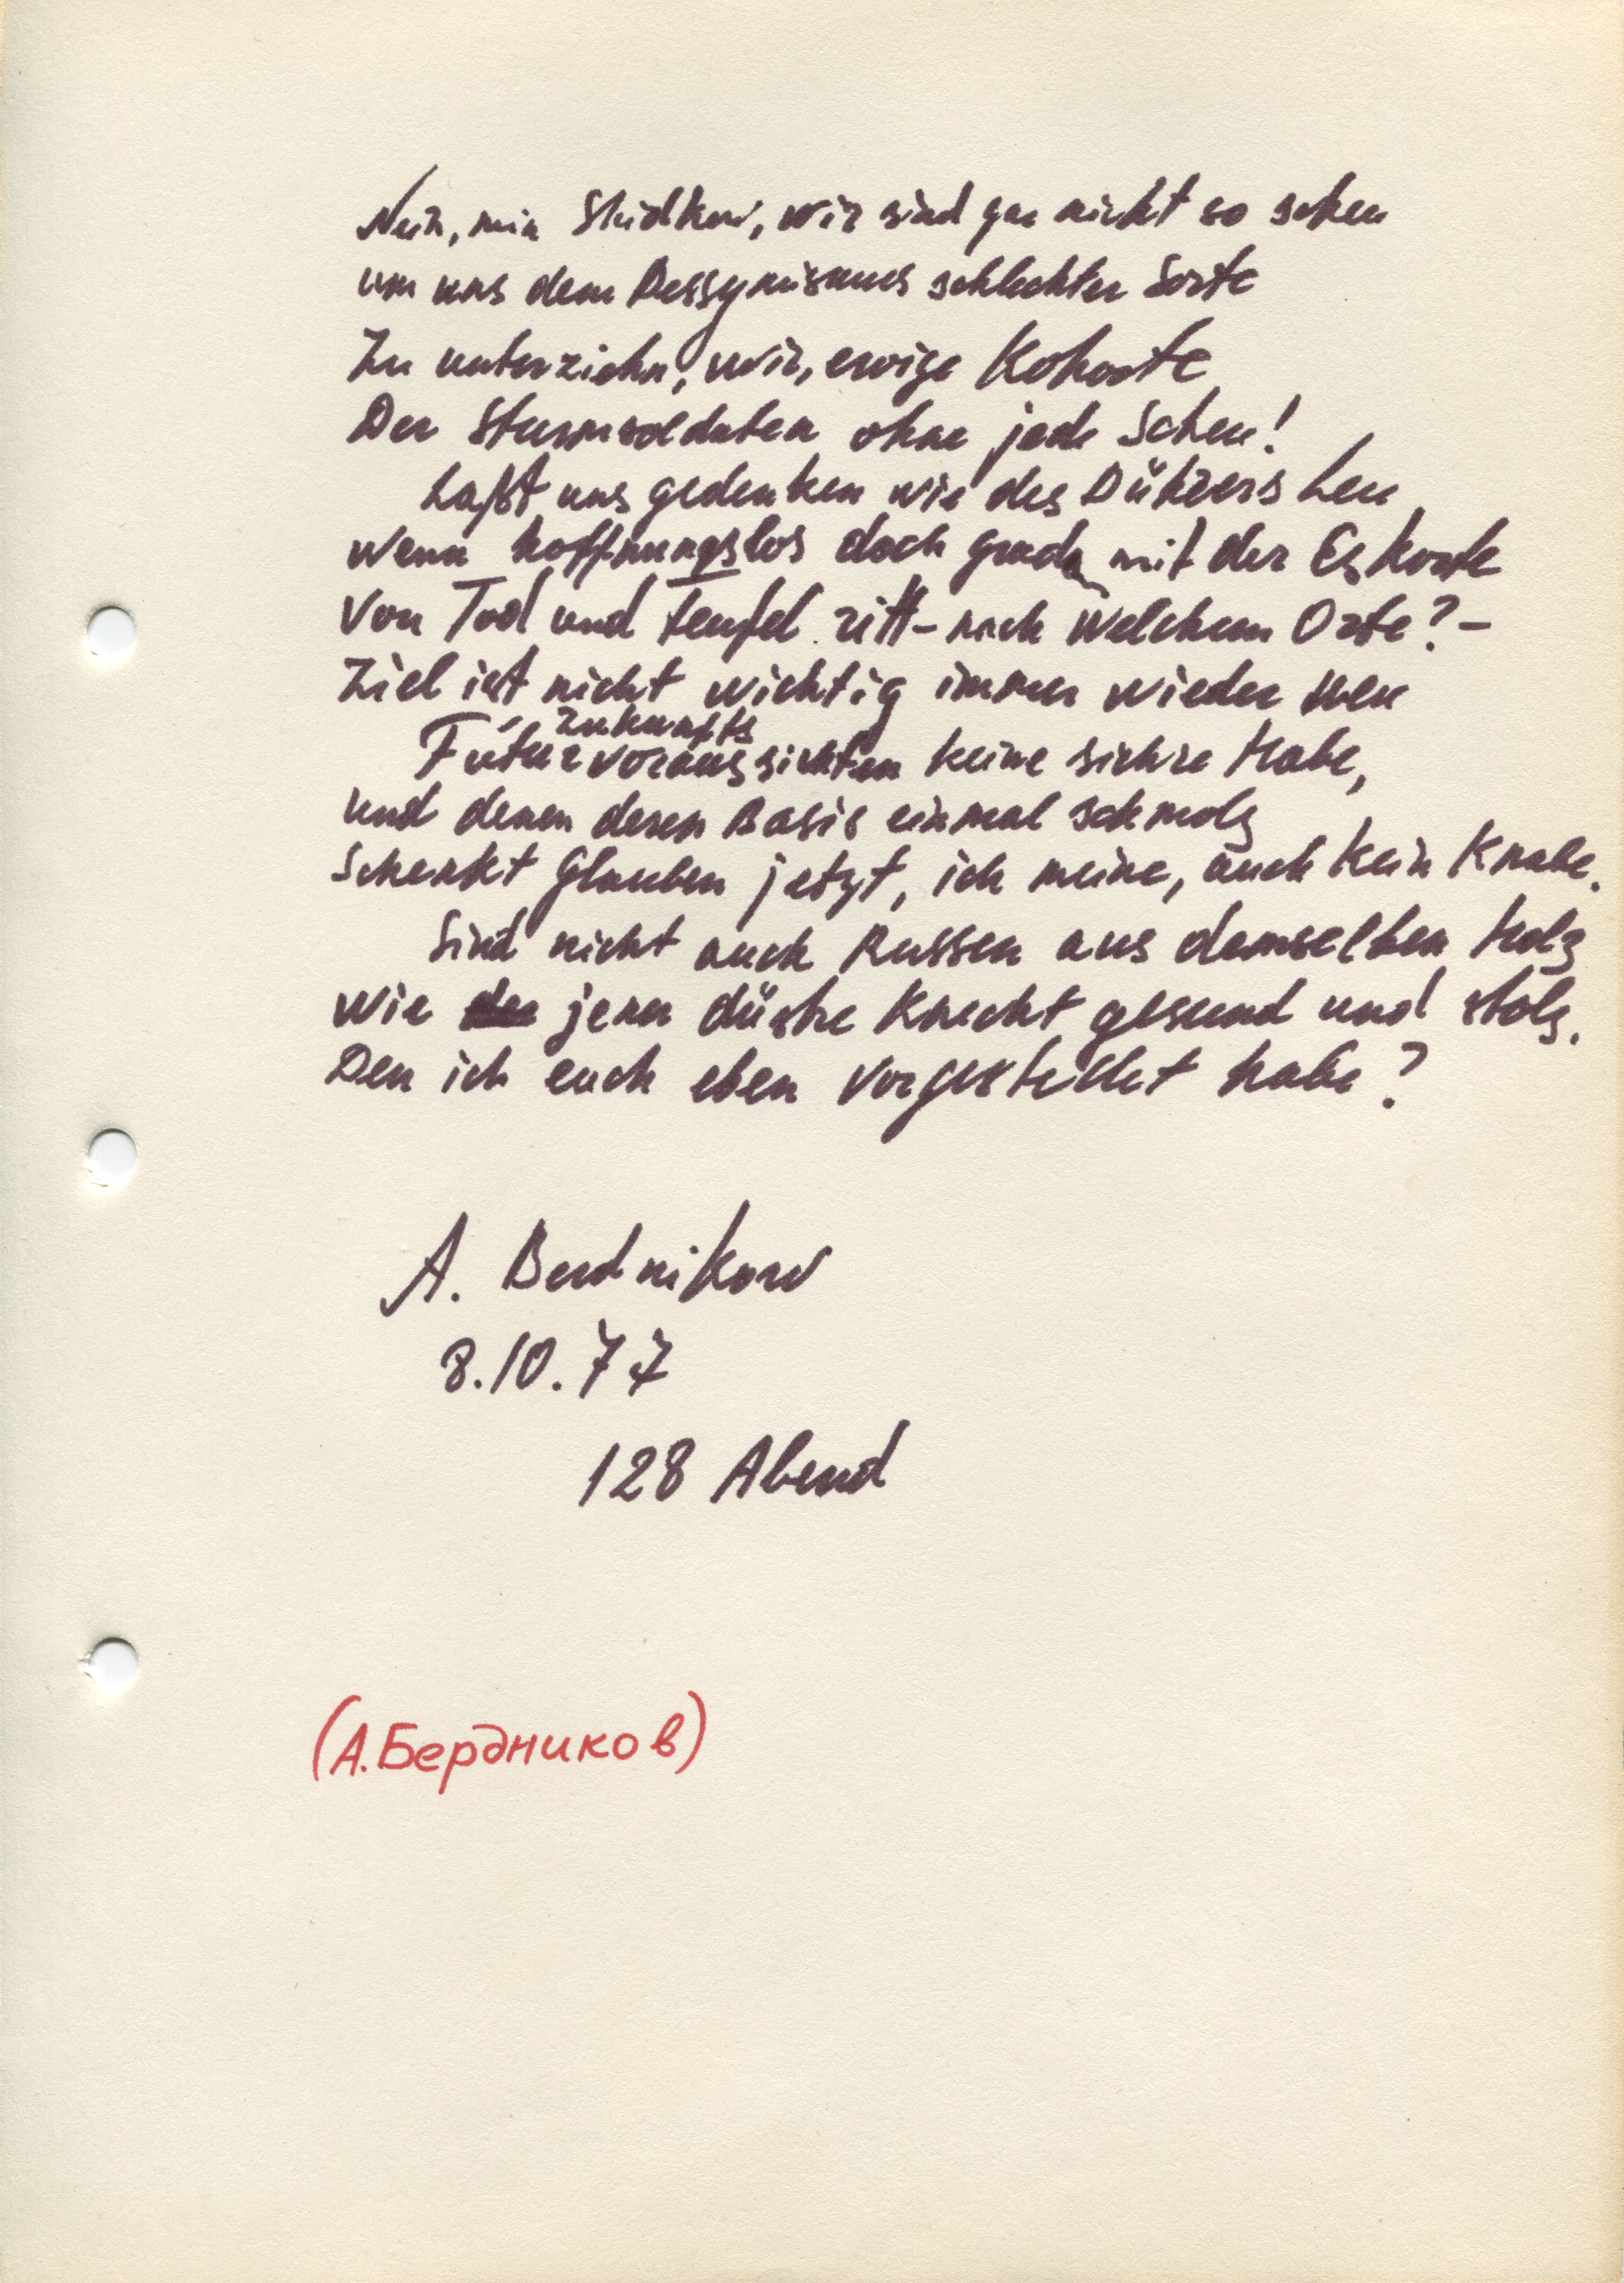 Nein, mein Shidkow, wir sind gar nicht so scheu
um uns dem Pessymismus schlechter Sorte
Zu unterziehn, wir, ewige Kohorte
Der Sturmsoldaten ohne jede Scheu!
Laßt uns gedenken wie des Dürers Leu
wenn hoffnungslos doch grade mit der Eskorte
Von Tod und Teufel ritt - nach welchem Orte? -
Ziel ist nicht wichtig immer wieder neu
Zukunfts
Futurvoraussichten keine sichre Habe,
und denen deren Basis einmal schmolz
Schenkt Glauben jetzt, ich meine, auch kein Knabe.
Sind nicht auch Russen aus demselben Holz
wie jener düstre Knecht gesund und stolz.
Den ich euch eben vorgestellt habe?
A. Berdnikow
8.10.77
128 Abend
(А. Бердников)